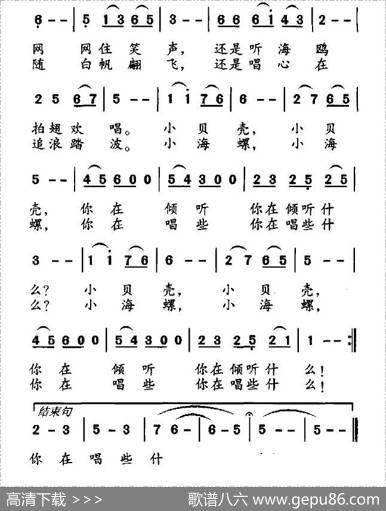 6·- | 5 1365 | 3-- | 666i43 | 2-- |
网 网住笑声，还是听海鸥
随 白帆翩飞，还是唱心在
2 5 67 | 5-- | i i 76 | 6-- | 2 765 |
拍翅欢唱。小贝壳，小贝
追浪踏波。小海螺，小海
5-- | 45600 | 54300 | 23 25 25 |
壳，你在倾听你在倾听什
螺，你在唱些你在唱些什
3-- | i i 76 | 6-- | 2 765 | 5-- |
么？小贝壳，小贝壳，
么？小海螺，小海螺，
45600 | 54300 | 23 25 21 | 1-- :||
你在倾听你在倾听什么！
你在唱些你在唱些什么！
结束句
2-3 | 5-3 | 76- | 6-5 | 5-- | 5-- ||
你在唱些什
高清下载 >>>
歌谱八六 www.gepu86.com